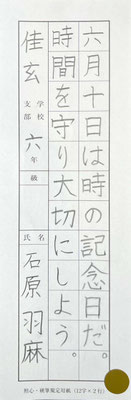 六月十日は時の記念日だ。
時間を守り大切にしよう。
佳玄 学校支部 六年級 氏名 石原羽麻
初心・硬筆規定用紙(12字×2行)